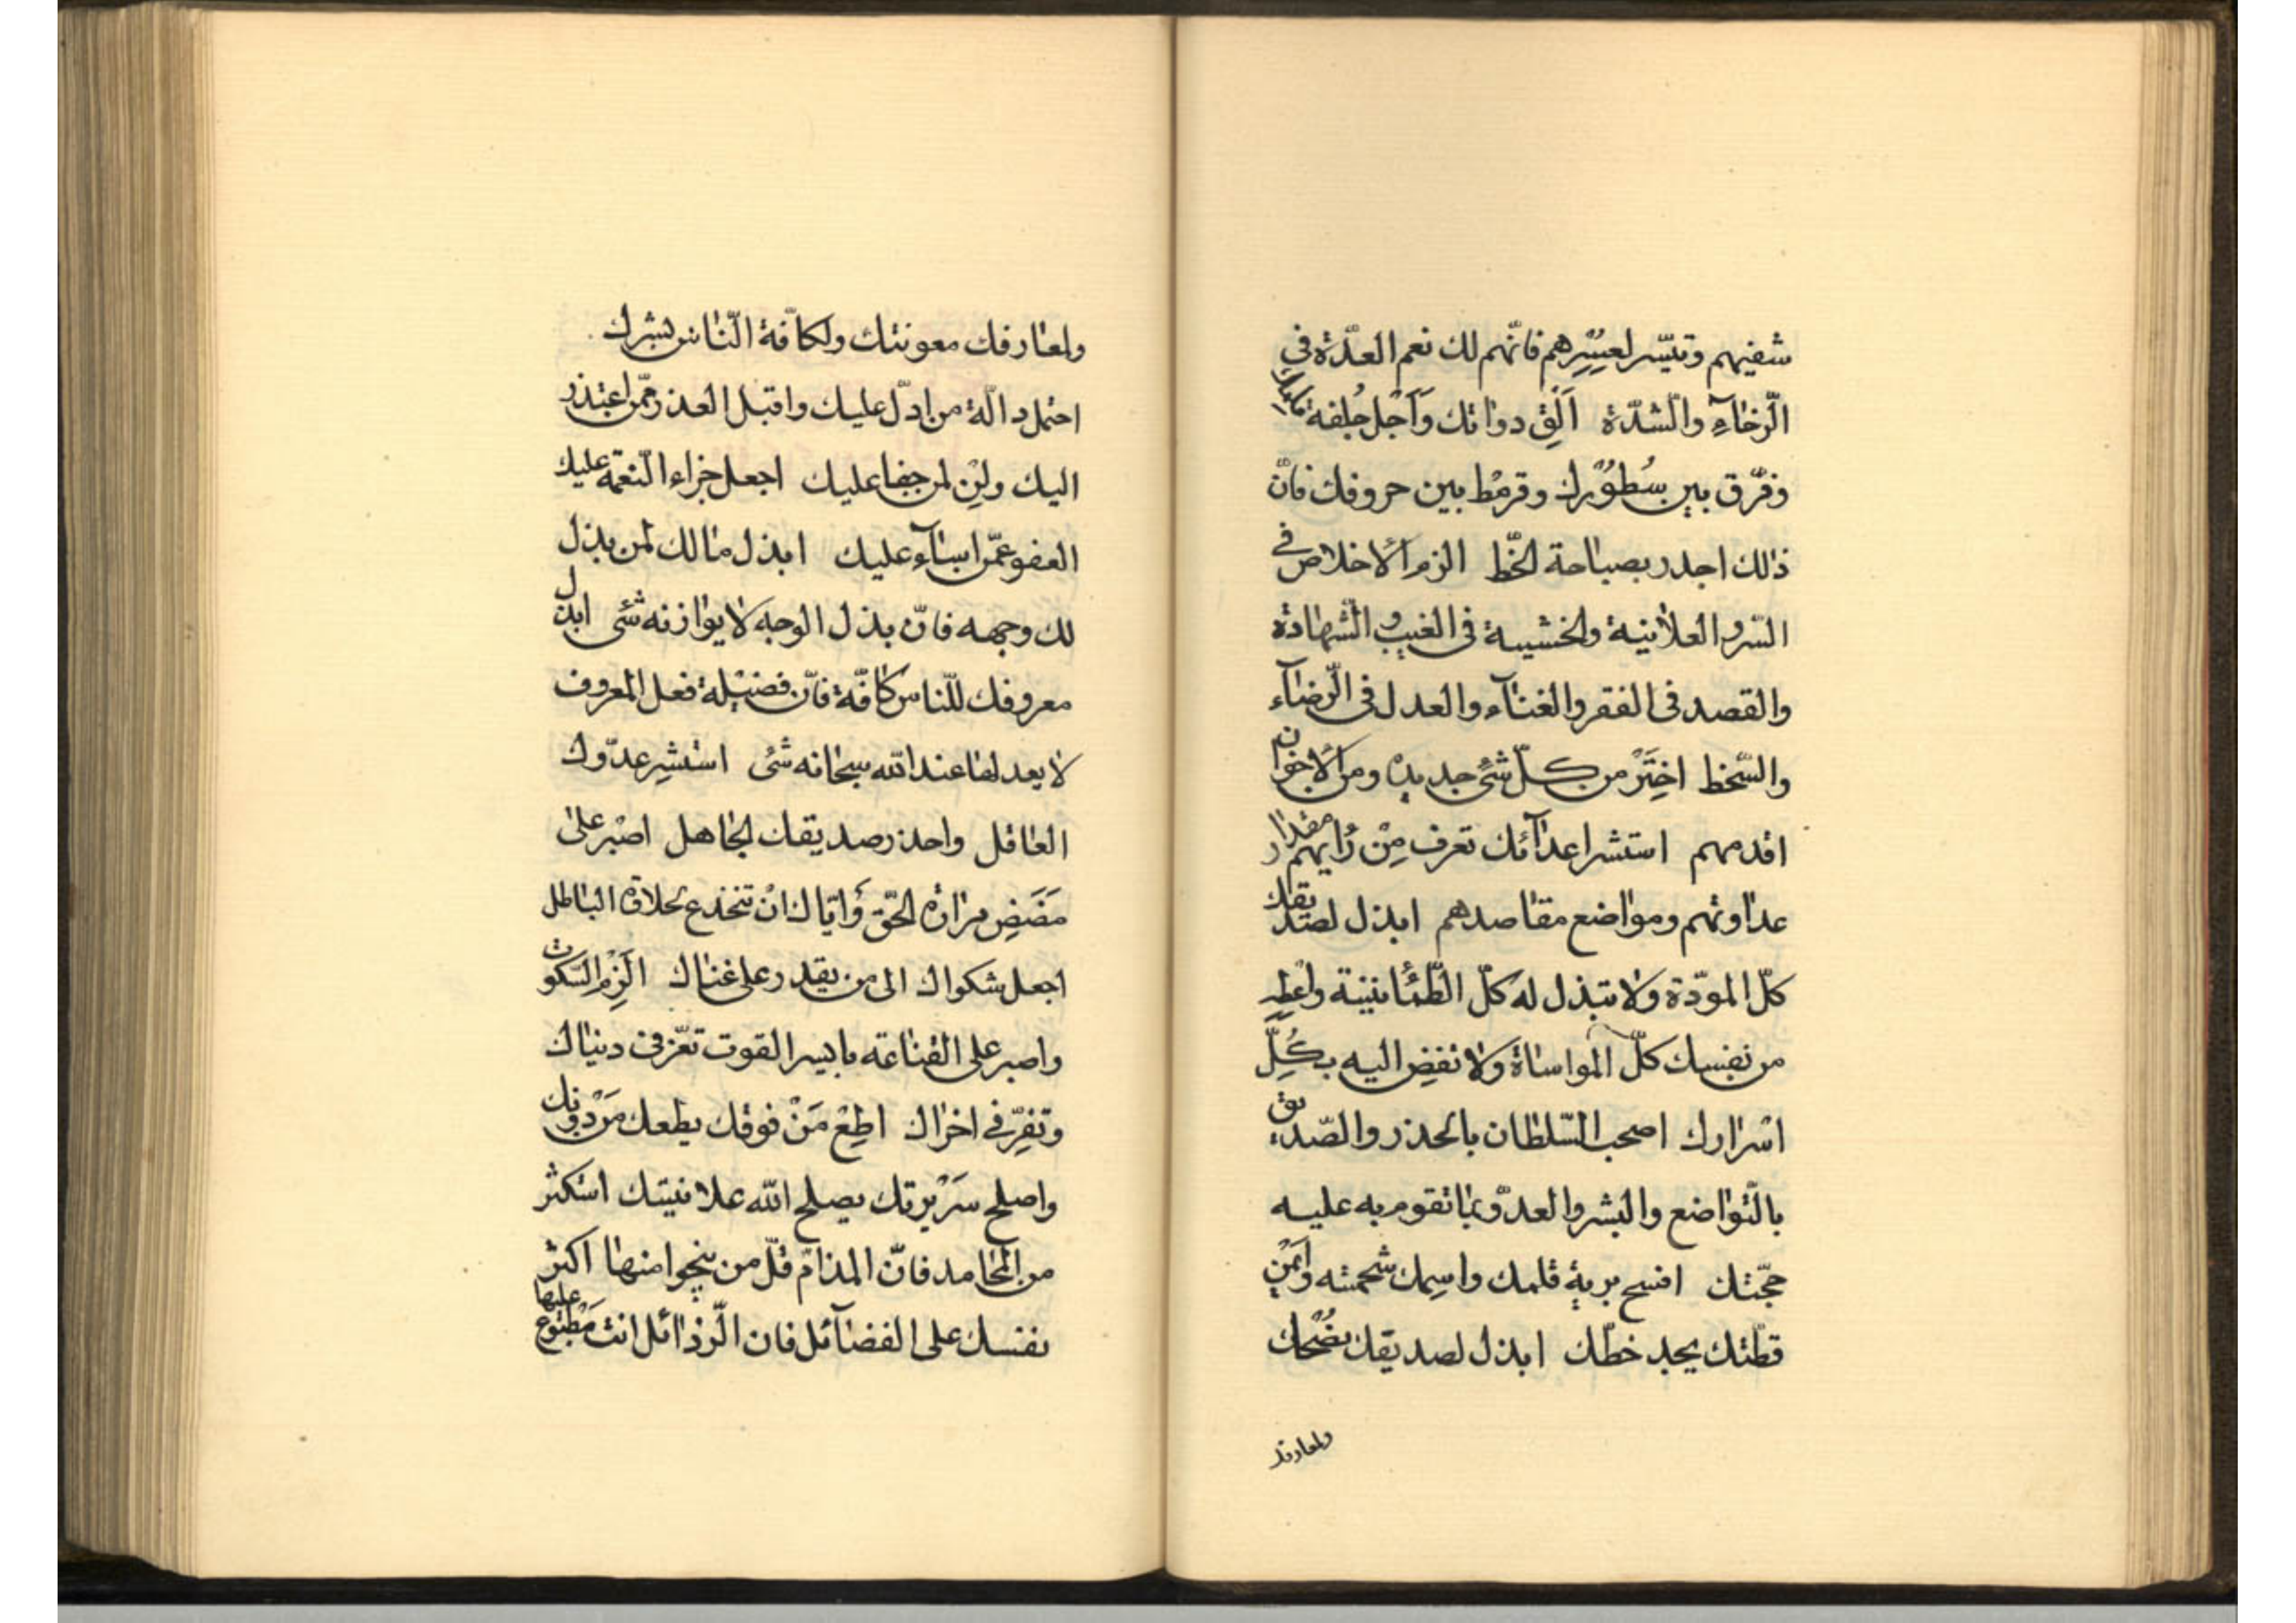 شفيهم وتيسّر لعسيرهم فانّهم لك نعم العدّة في
الّرخاآء والّشدّة اَلِقْ دواتك وَاَجْل جُلفة قلمك
وفرّق بين سُطُوْرك وقرمْط بين حروفك فانّ
ذالك اجدر بصباحة الخّط الزم الاخلاص في
السّر والعلانية والخشيية في الغيب والّشهادة
والقصد في الفقر والغناآء والعدل في الّرضاآء
والسّخط اختَرْ من كلّ شئ جديده ومن الاخوان
اقدمهم استشر اعداآئك تعرف مِنْ رُايهم مقدار
عداوتهم ومواضع مقاصدهم ابذل لصديقك
كلّ المودّة ولا تبذل له كلّ الطّمُأنينة واعطِه
من نفسك كلّ المواساة ولا تفضِ اليه بكُلِّ
اسْرارك اصحب السّلطان بالحذر والصّديق
بالتّواضع والبشر والعدّو بما تقوم به عليه
حجّتك افسح برية قلمك واسمِك شحمته وأيمْن
قطّتك يجد خطّك ابذل لصديقك نصُْحك
ولمعارفك
ولمعارفك معونتك ولكافّة الّناس بشرك
احتمل دالّة من ادلّ عليك واقبل العذر ممّن اعتذر
اليك ولِنْ لمن جفا عليك اجعل جزاء النّعمة عليك
العفو عمّن اساآء عليك ابذل مالك لمن بذل
لك وجهه فانّ بذل الوجه لا يوازنه شئ ابذل
معروفك للّناس كافّة فانّ فضيْلة فعل المعروف
لا يعد لها عند الله سبحانه شئ استشِر عدّوك
العاقل واحذر صديقك الجاهل اصْبر على
مَضَضِ مرارة الحّق وَايّاك انْ تنخدع لحلاوة الباطل
اجعل شكواك الى من يقدر على غناك الَزِم السّكوت
واصبر على القناعة بايسر القوت تعّز في دنياك
وتفِزّ في اخراك اطِعْ مَنْ فوقك يطعك مَنْ دونك
واصلح سَريْرتك يصلح الله علانيتك استكثر
من المحامد فانّ المذامّ قلّ من ينجوا منها اكثر
نفسك على الفضاآئل فان الّرذائل انت مَطبْوع عليها